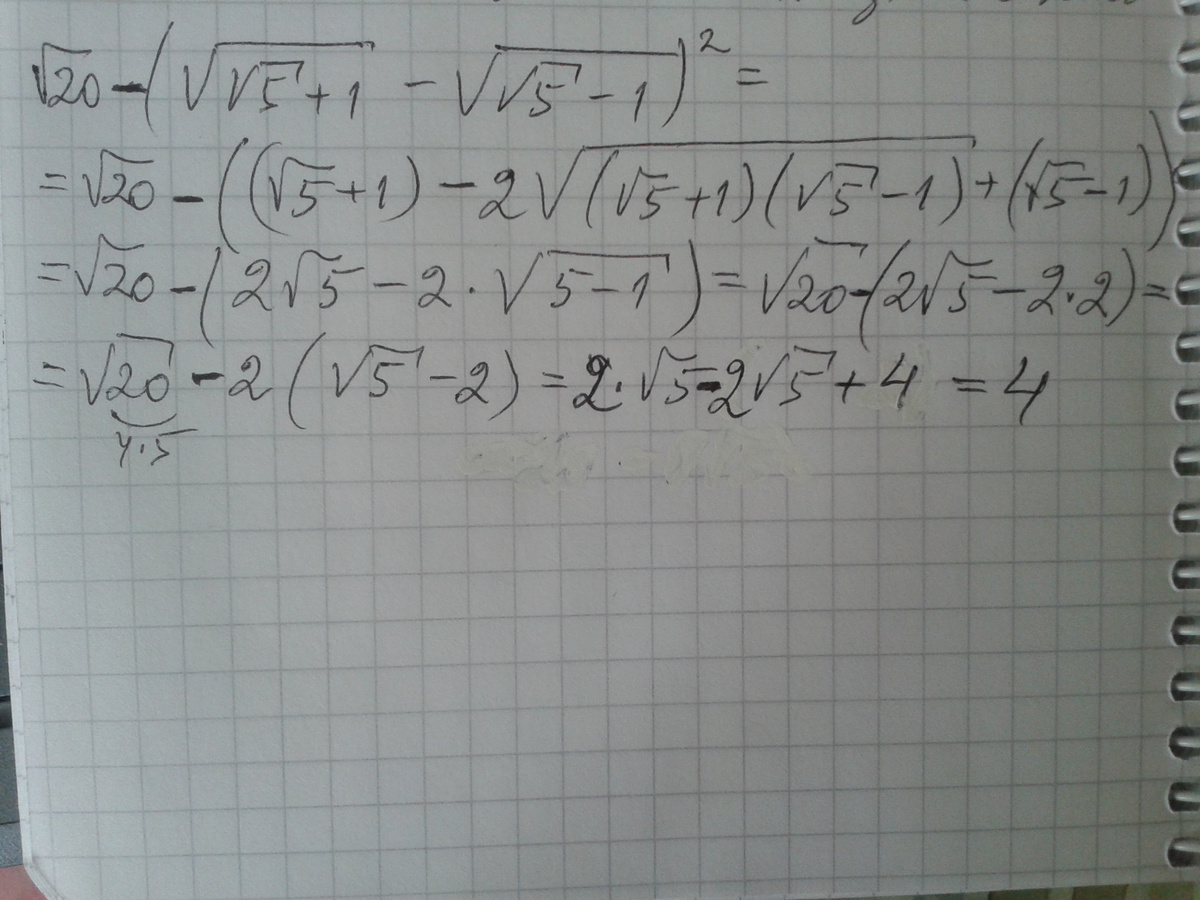 √20 - (√(√5 + 1) - √(√5 - 1))² =
= √20 - ((√5 + 1) - 2√((√5 + 1)(√5 - 1)) + (√5 - 1))
= √20 - (2√5 - 2 · √(5 - 1)) = √20 - (2√5 - 2 · 2) =
= √20 - 2 (√5 - 2) = 2 · √5 - 2√5 + 4 = 4
4·5